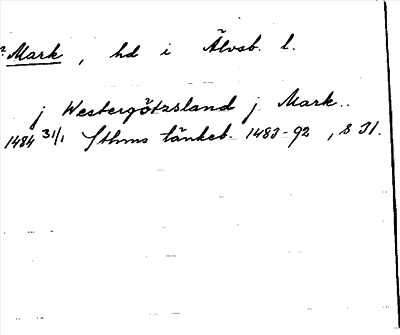 ? Mark, hd i Älvsb. l.
j Westergötzsland j Mark..
1484 31/1 Sthms tänkeb. 1483-92, s 31.